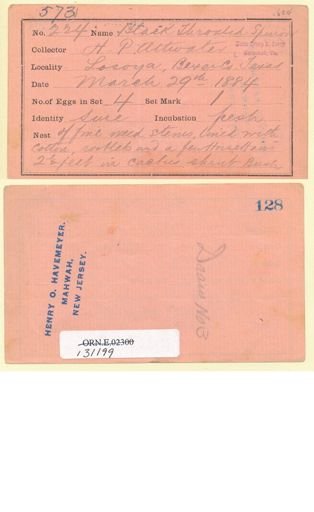 573
No. 224 Name Black Throated Sparrow
Collector H. P. Attwater
Locality Losoya, Bexar Co, Texas
Date March 29th 1884
No. of Eggs in Set 4 Set Mark 1
Identity Sure Incubation fresh
Nest of fine weed stems, lined with
cotton, rootlets and a few Horsehair
2½ feet in cactus Bush
128
HENRY O. HAVEMEYER.
MAHWAH,
NEW JERSEY.
Draw No 3
ORN.E.02300
131199